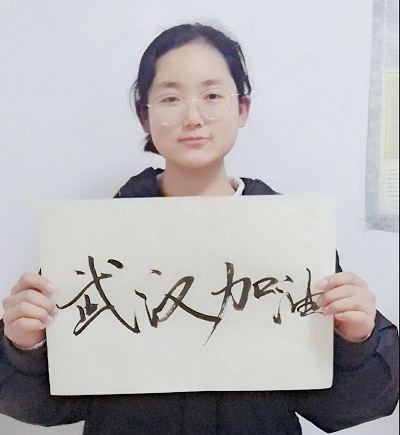 武汉加油